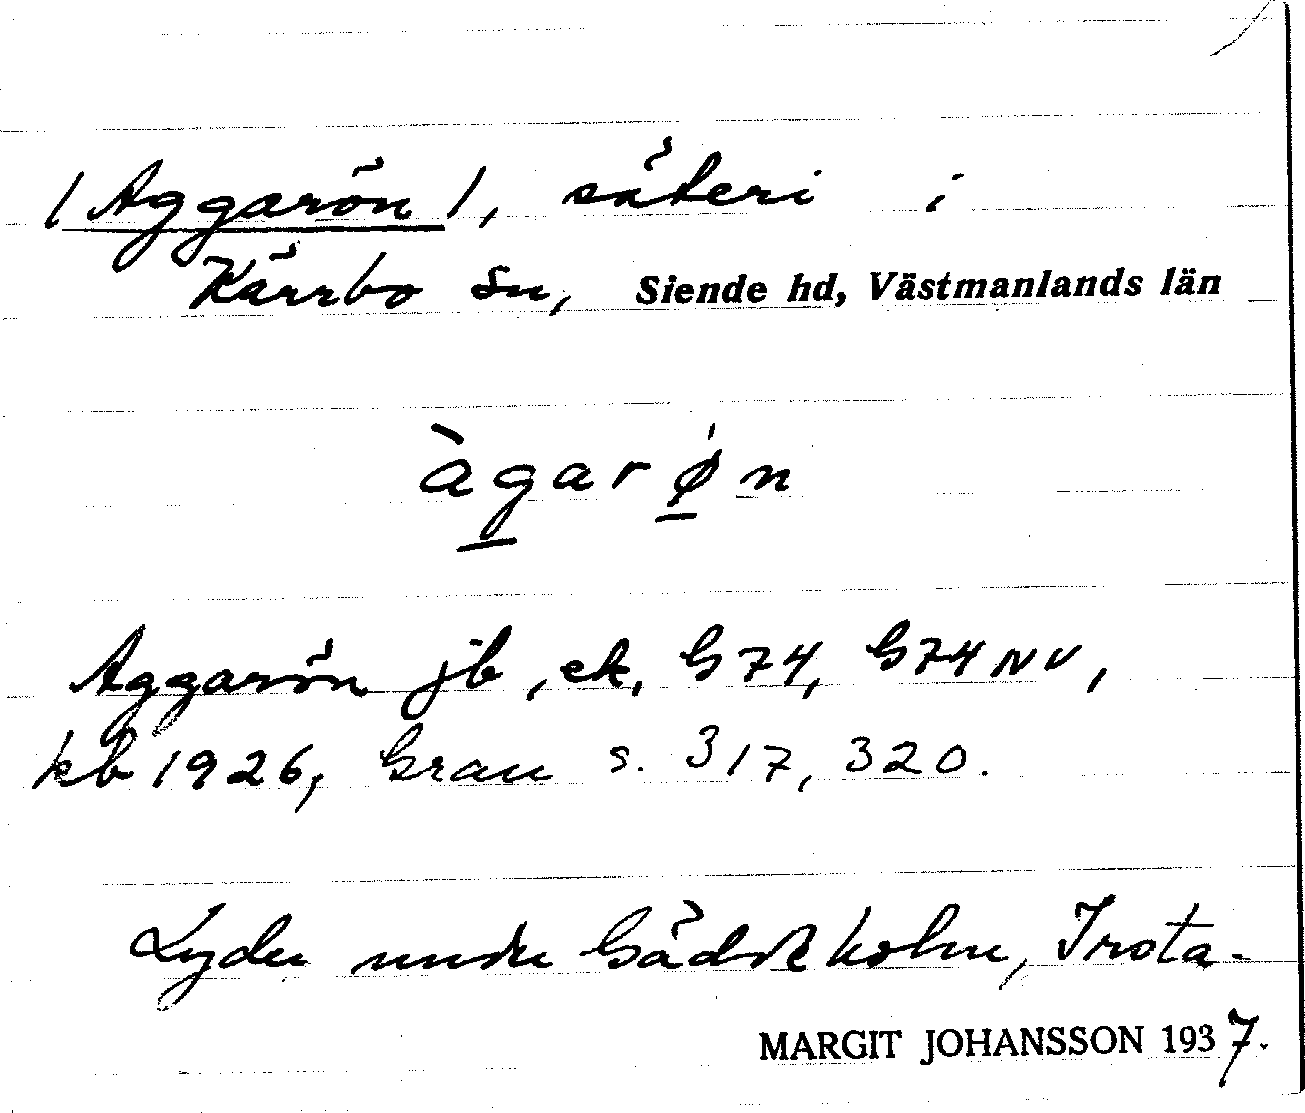 /Aggarön/, säteri i
Kärrbo sn, Siende hd, Västmanlands län
àgarø̀n
Aggarön jb, ek, G74, G74NV,
kb 1926, Grau s. 317, 320.
Lyder under Gäddeholm, Irsta.
MARGIT JOHANSSON 1937.